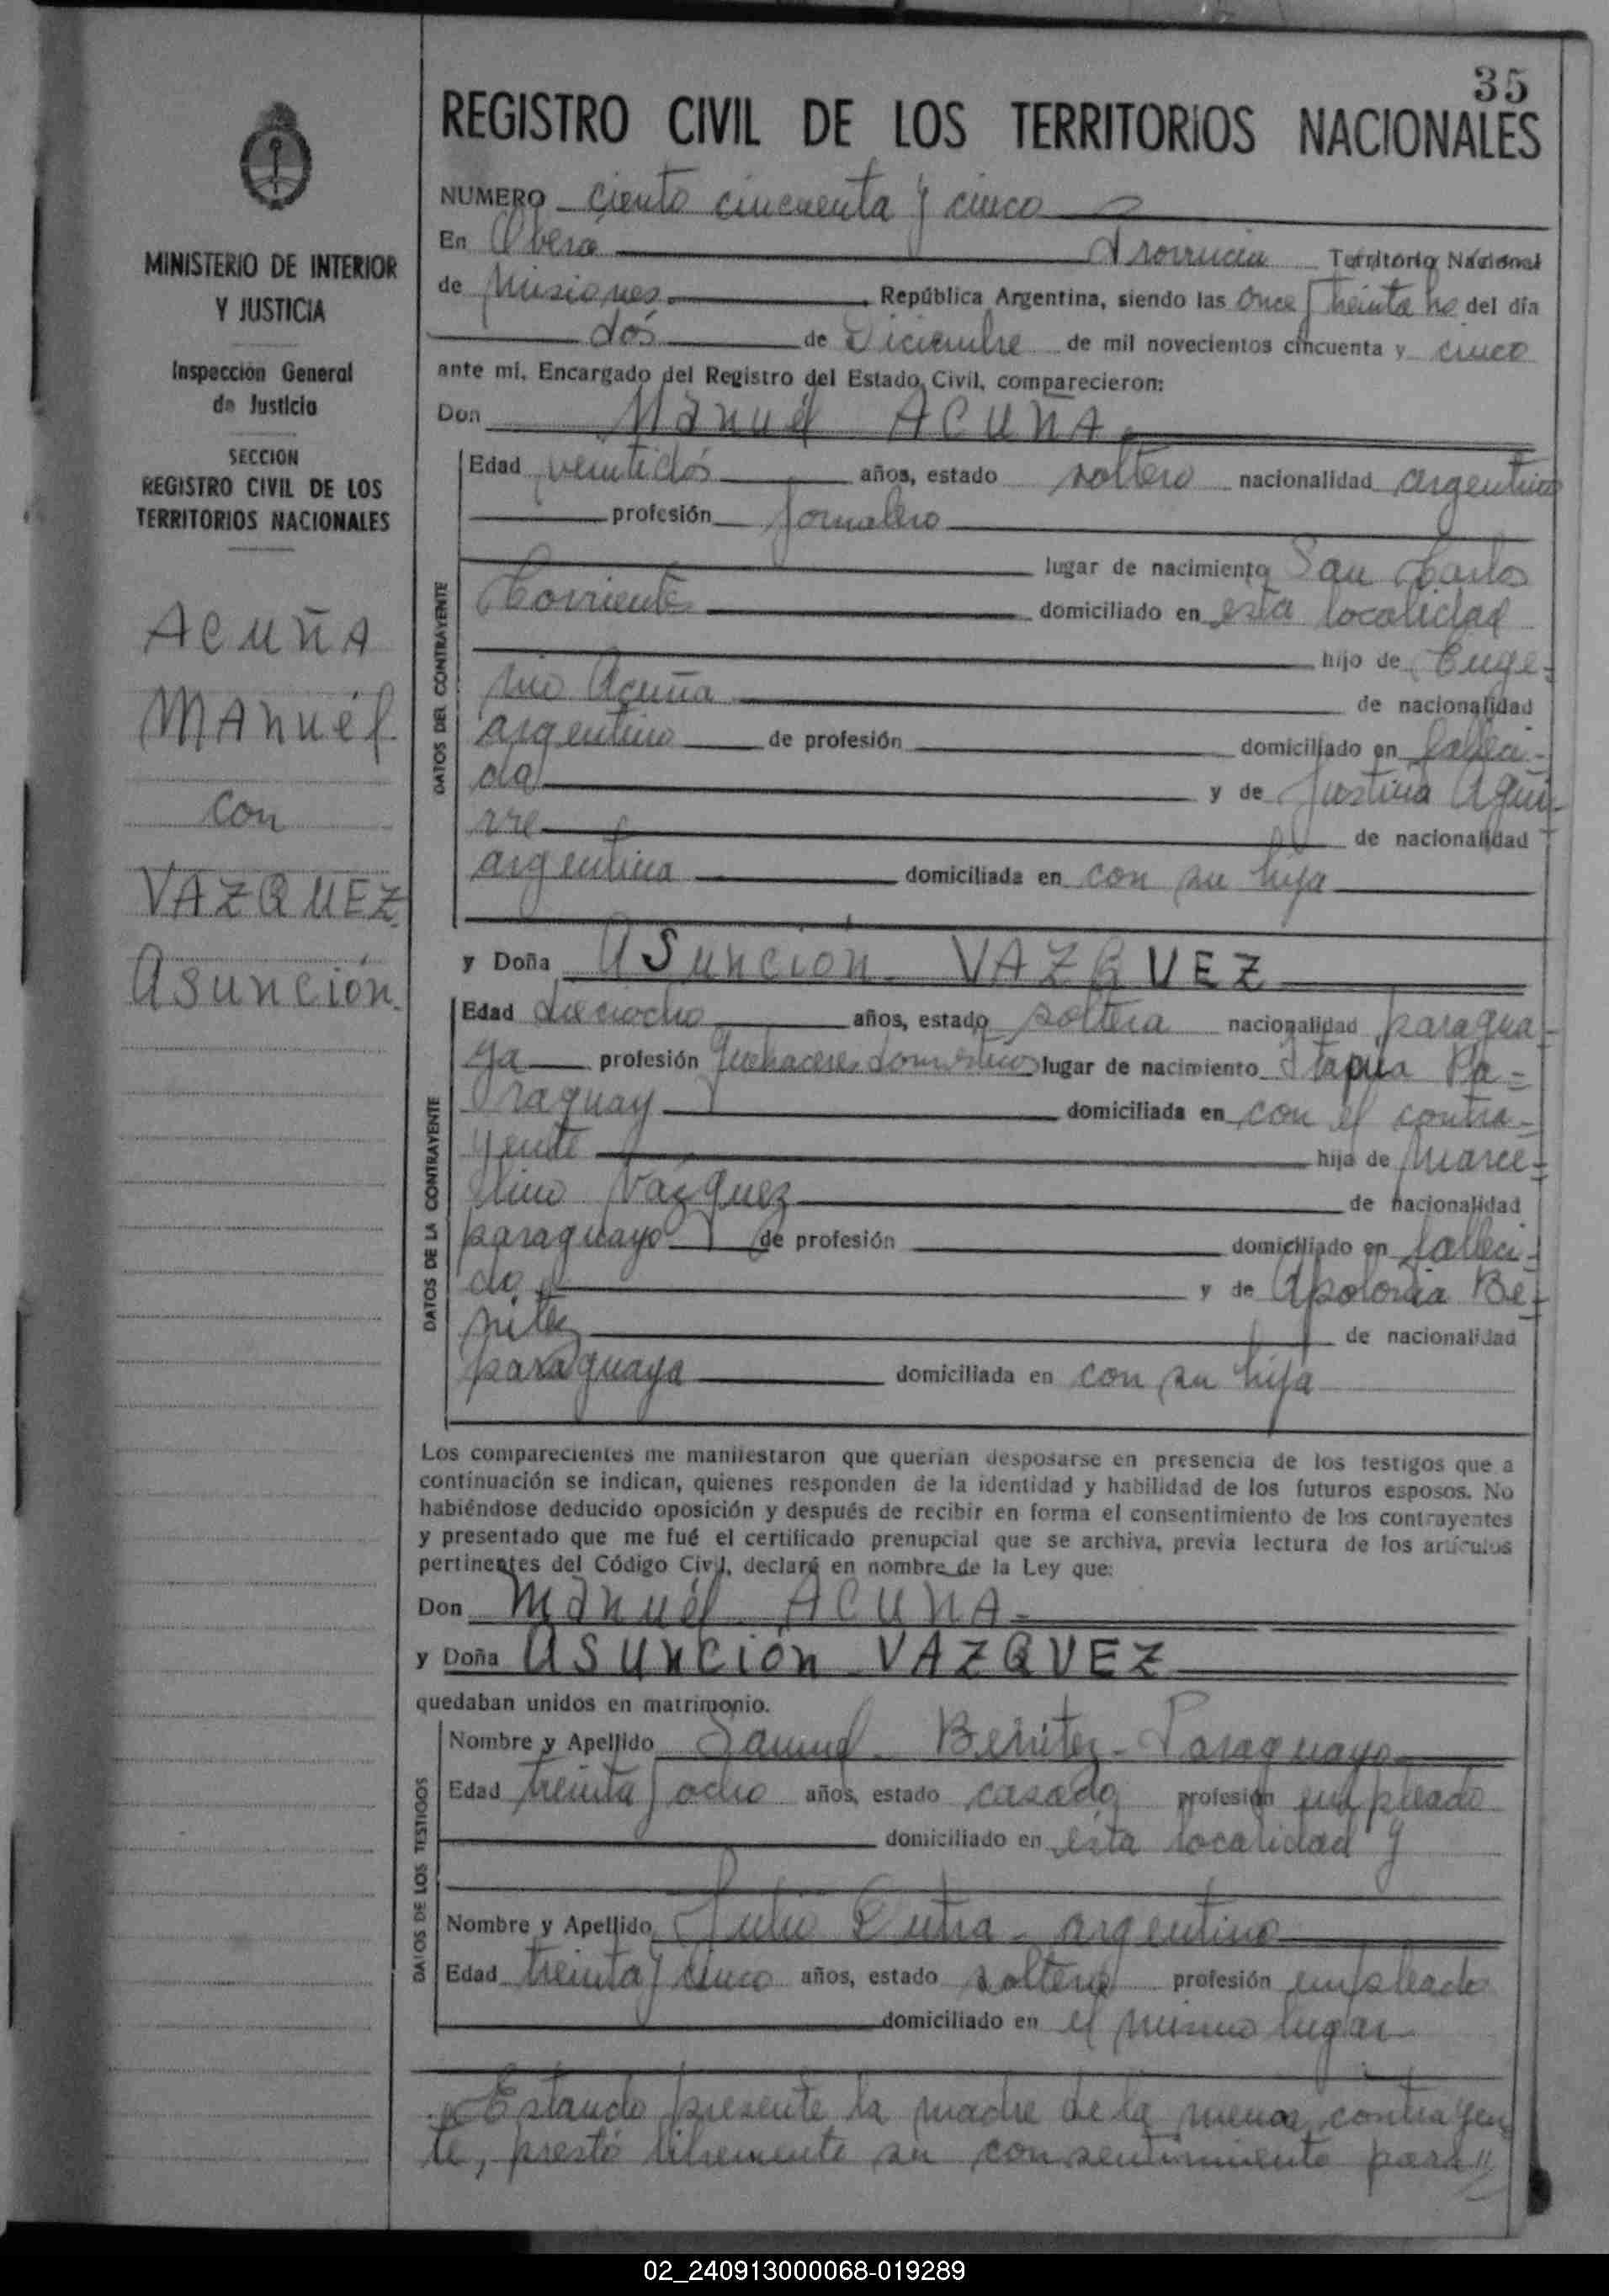 35
REGISTRO CIVIL DE LOS TERRITORIOS NACIONALES
MINISTERIO DE INTERIOR
Y JUSTICIA
Inspección General
de Justicia
SECCION
REGISTRO CIVIL DE LOS
TERRITORIOS NACIONALES
ACUÑA
MANUél
con
VAZQUEZ
Asunción
NUMERO ciento cincuenta y cinco
En Oberá Provincia Territorio Nacional
de Misiones República Argentina, siendo las once y treinta hs del día
dós de Diciembre de mil novecientos cincuenta y cinco
ante mí, Encargado del Registro del Estado Civil, comparecieron:
Don Manuél ACUÑA
DATOS DEL CONTRAYENTE
Edad veintidós años, estado soltero nacionalidad argentino
profesión Jornalero
lugar de nacimiento San Carlos
Corrientes domiciliado en esta localidad
hijo de Euge-
nio Acuña de nacionalidad
argentino de profesión domiciliado en falleci-
do y de Justina Agui-
rre de nacionalidad
argentina domiciliada en con su hija
y Doña Asunción VAZQUEZ
DATOS DE LA CONTRAYENTE
Edad dieciocho años, estado soltera nacionalidad paragua-
ya profesión Quehaceres domesticos lugar de nacimiento Itapúa Pa-
raguay domiciliada en con el contra-
yente hija de Marce-
lino Vázquez de nacionalidad
paraguayo de profesión domiciliado en falleci-
do y de Apolonia Be-
nitez de nacionalidad
paraguaya domiciliada en con su hija
Los comparecientes me manifestaron que querían desposarse en presencia de los testigos que a
continuación se indican, quienes responden de la identidad y habilidad de los futuros esposos. No
habiéndose deducido oposición y después de recibir en forma el consentimiento de los contrayentes
y presentado que me fué el certificado prenupcial que se archiva, previa lectura de los artículos
pertinentes del Código Civil, declaré en nombre de la Ley que:
Don Manuél ACUÑA
y Doña Asunción VAZQUEZ
quedaban unidos en matrimonio.
DATOS DE LOS TESTIGOS
Nombre y Apellido Samuel Benitez - Paraguayo
Edad treinta y ocho años, estado casado profesión empleado
domiciliado en esta localidad y
Nombre y Apellido Julio Dutra - argentino
Edad treinta y cinco años, estado soltero profesión empleado
domiciliado en el mismo lugar
Estando presente la madre de la menor contrayen
te, prestó libremente su consentimiento para //
02_240913000068-019289